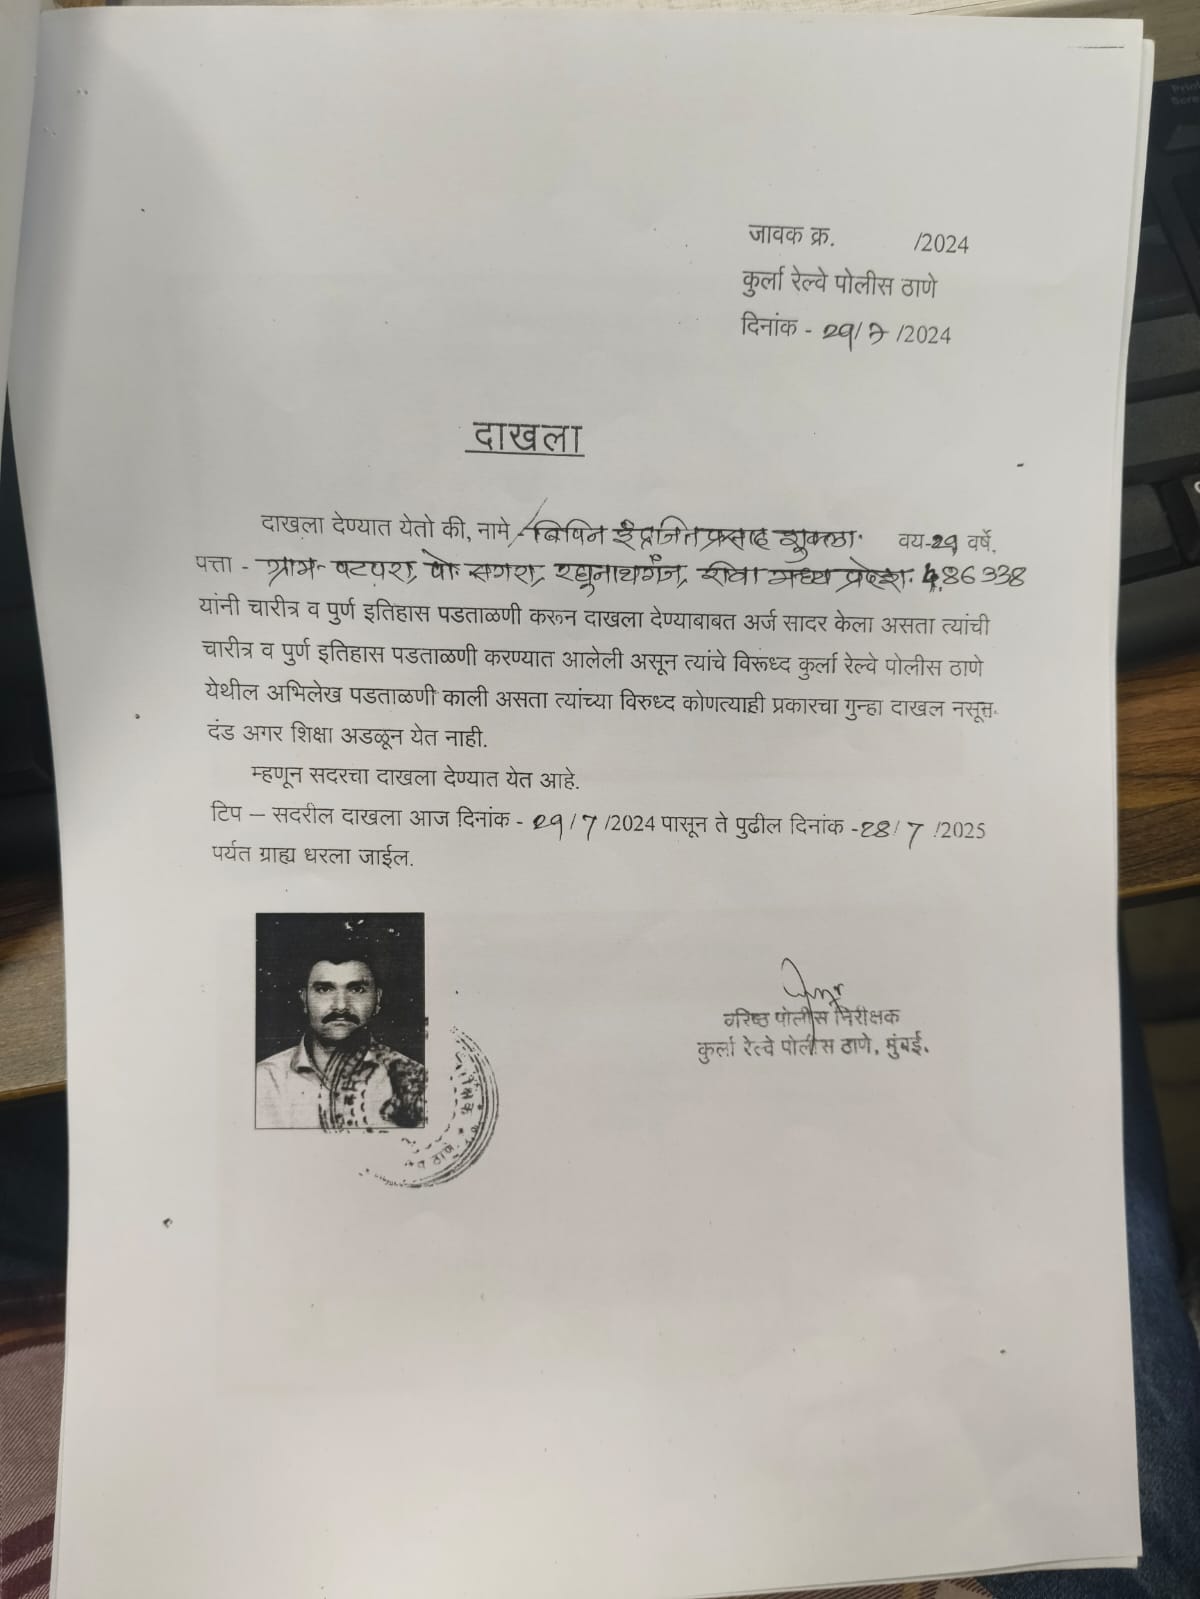 जावक क्र. /2024
कुर्ला रेल्वे पोलीस ठाणे
दिनांक - 29/7 /2024
दाखला
दाखला देण्यात येतो की, नामे - बिपिन इंद्रजित प्रसाद शुक्ला. वय-29 वर्षे,
पत्ता - ग्राम- पटपरा, पो. सगरा, रघुनाथगंज, रीवा मध्य प्रदेश. 486338
यांनी चारीत्र व पुर्ण इतिहास पडताळणी करून दाखला देण्याबाबत अर्ज सादर केला असता त्यांची
चारीत्र व पुर्ण इतिहास पडताळणी करण्यात आलेली असून त्यांचे विरूध्द कुर्ला रेल्वे पोलीस ठाणे
येथील अभिलेख पडताळणी काली असता त्यांच्या विरुध्द कोणत्याही प्रकारचा गुन्हा दाखल नसून
दंड अगर शिक्षा अडळून येत नाही.
म्हणून सदरचा दाखला देण्यात येत आहे.
टिप – सदरील दाखला आज दिनांक - 29/7 /2024 पासून ते पुढील दिनांक -28/7 /2025
पर्यत ग्राह्य धरला जाईल.
वरिष्ठ पोलीस निरीक्षक
कुर्ला रेल्वे पोलीस ठाणे, मुंबई.